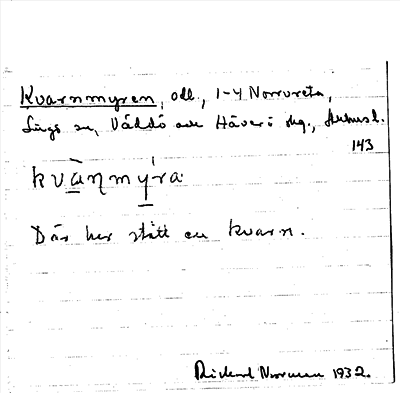 Kvarnmyren, odl., 1-4 Norrvreta,
Singö sn, Väddö och Häverö skg., Stockhlms l.
143
kvàṇmý̱ra
Där har stått en kvarn.
Rickard Norrman 1932.